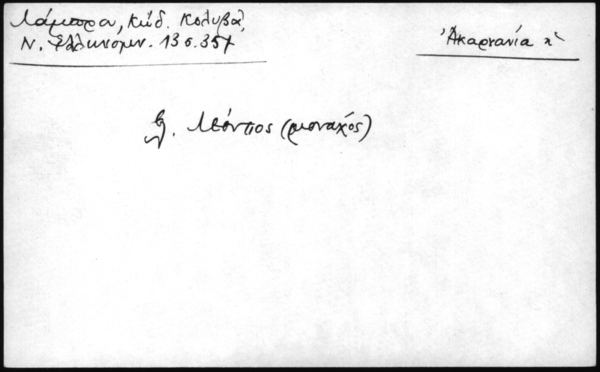 Λάμπρου, Κώδ. Κολυβᾶ,
Ν. Ἑλληνομν. 13 σ. 357
Ἀκαρνανία
Λεόντιος (μοναχός)